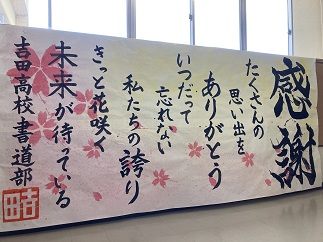 感謝
たくさんの
思い出を
ありがとう
いつだって
忘れない
私たちの誇り
きっと花咲く
未来が待っている
吉田高校書道部
吉田